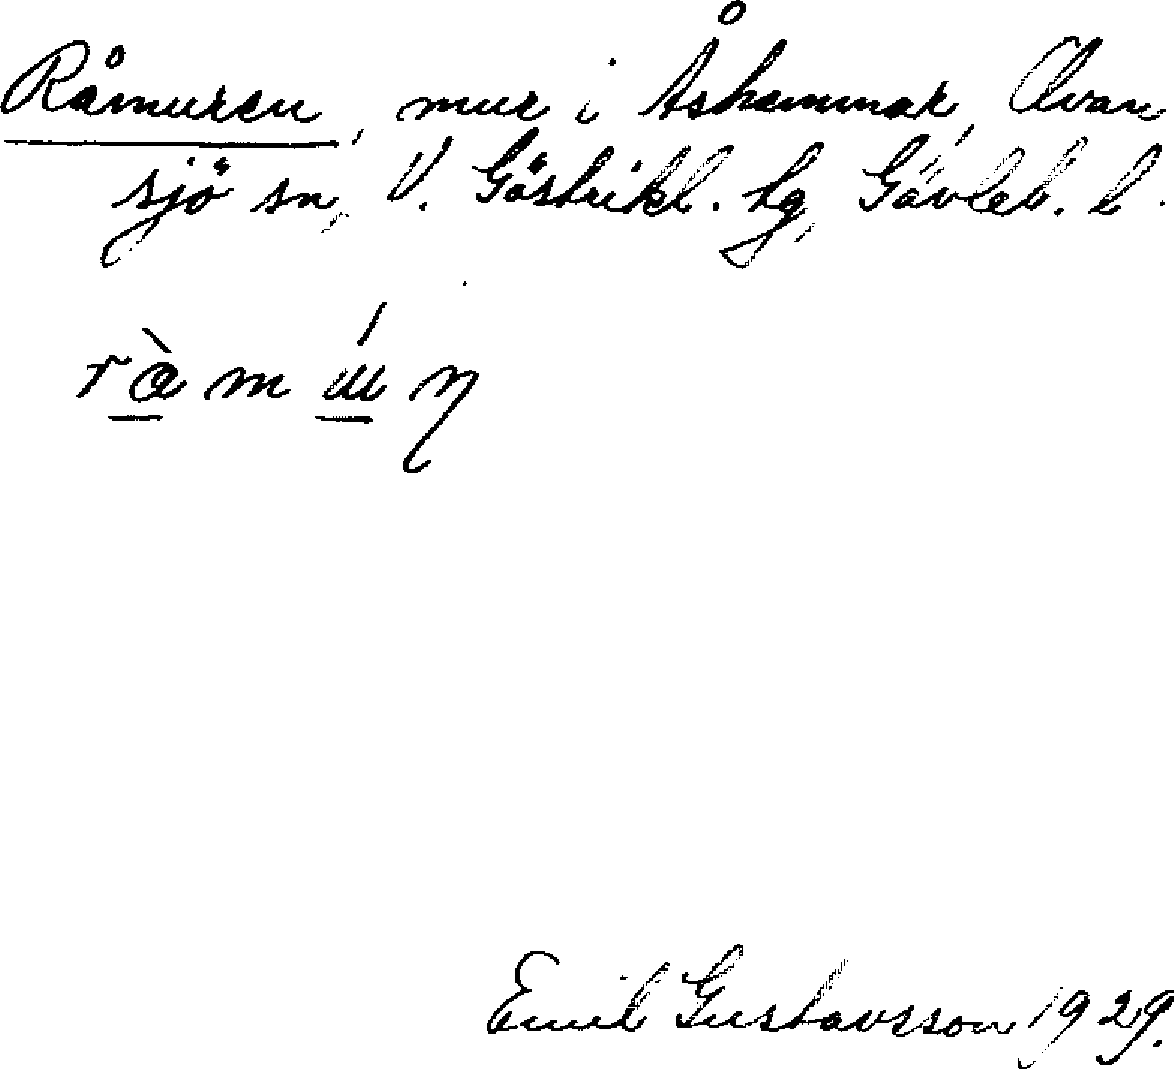 Råmuren, mur i Åshammar, Ovan
sjö sn, V. Gästrikl. tg, Gävleb. l.
Emil Gustavsson 1929.